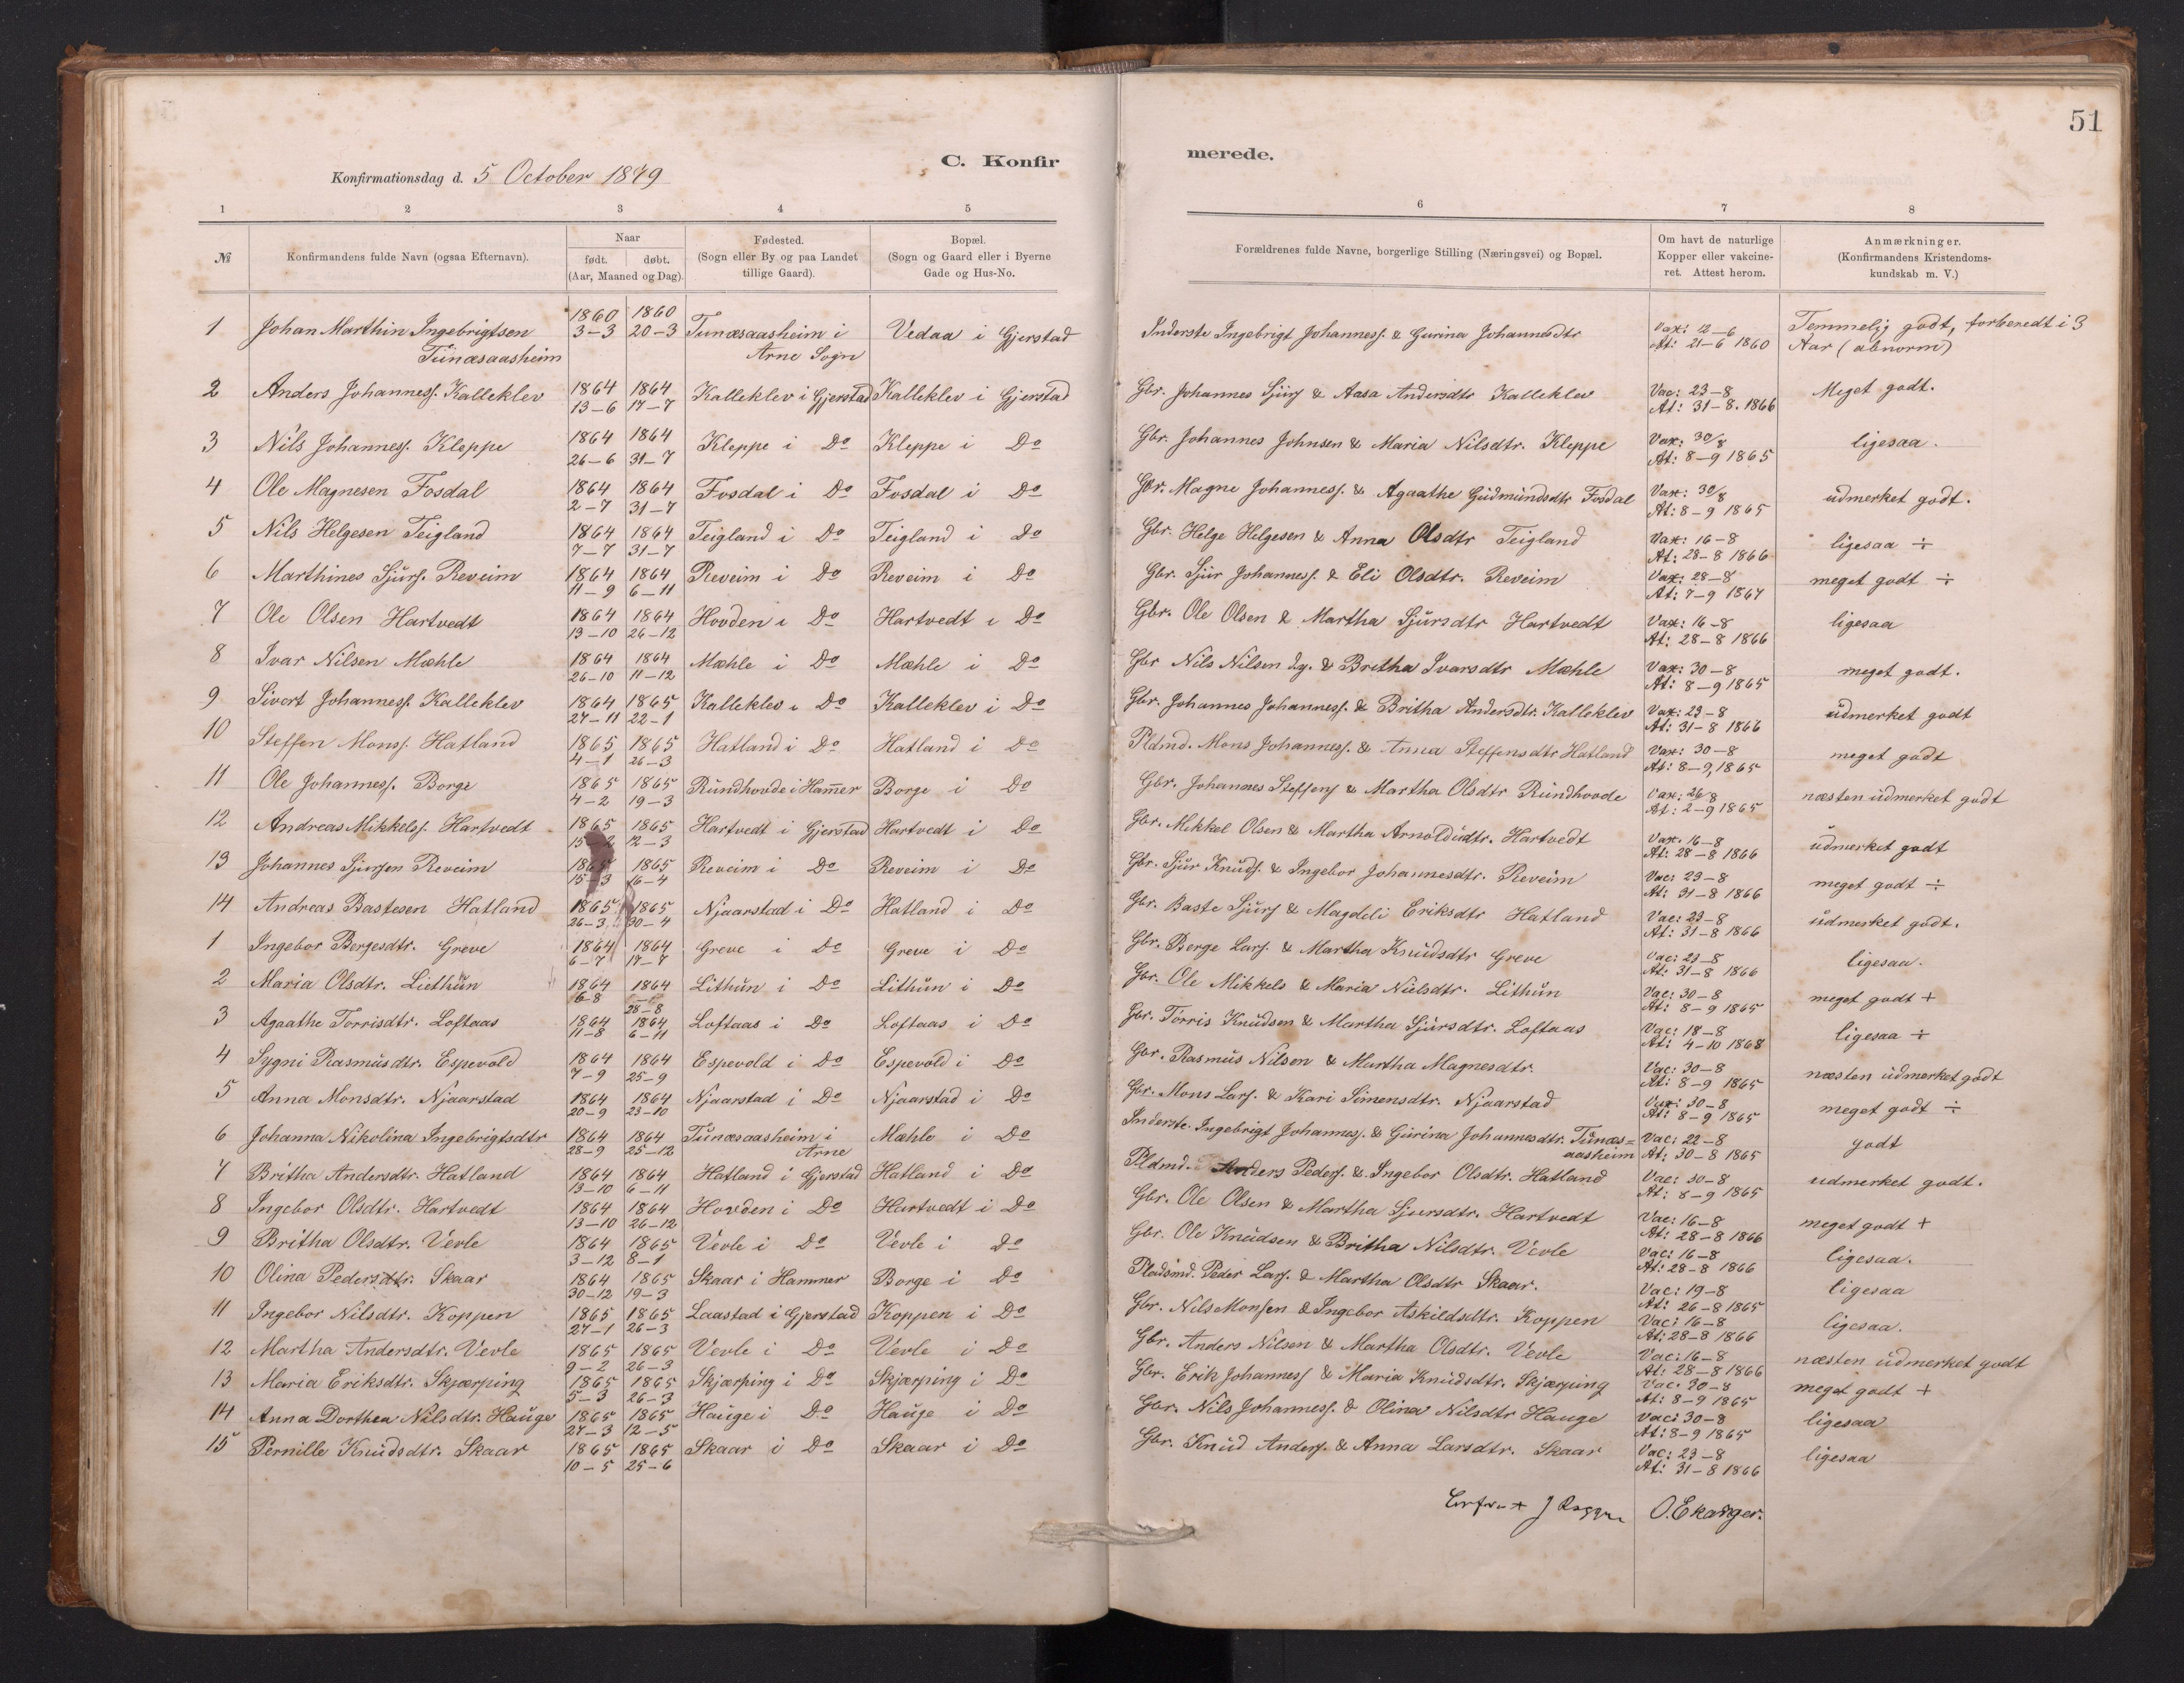 51
C. Konfirmerede.
Konfirmationsdag d. 5 October 1879
1 2 3 4 5 6 7 8
№ Konfirmandens fulde Navn (ogsaa Efternavn). Naar født. døbt. (Aar, Maaned og Dag). Fødested. (Sogn eller By og paa Landet tillige Gaard). Bopæl. (Sogn og Gaard eller i Byerne Gade og Hus-No. Forældrenes fulde Navne, borgerlige Stilling (Næringsvei) og Bopæl. Om havt de naturlige Kopper eller vakcineret. Attest herom. Anmærkninger. (Konfirmandens Kristendomskundskab m. V.)
1 Johan Marthin Ingebrigtsen Tünæsaasheim 1860 3-3 1860 20-3 Tunæsaasheim i Arne Sogn Vedaa i Gjerstad Inderste Ingebrigt Johanness. & Gurina Johannesdtr Vax: 12-6 At: 21-6 1860 Temmelig godt, forberedt i 3 Aar (abnorm)
2 Anders Johanness. Kalleklev 1864 13-6 1864 17-7 Kalleklev i Gjerstad Kalleklev i Gjerstad Gbr. Johannes Sjürs & Aasa Andersdtr Kalleklev Vac: 23-8 At: 31-8. 1866 Meget godt.
3 Nils Johanness. Kleppe 1864 26-6 1864 31-7 Kleppe i Do Kleppe i Do Gbr. Johannes Johnsen & Maria Nilsdtr. Kleppe Vax: 30/8 At: 8-9 1865 ligesaa.
4 Ole Magnesen Fosdal 1864 2-7 1864 31-7 Fosdal i Do Fosdal i Do Gbr. Magne Johanness. & Agaathe Güdmündsdtr Fosdal Vax: 30/8 At: 8-9 1865 üdmerket godt.
5 Nils Helgesen Teigland 1864 7-7 1864 31-7 Teigland i Do Teigland i Do Gbr. Helge Helgesen & Anna Olsdtr Teigland Vax: 16-8 At: 28-8 1866 ligesaa ÷
6 Marthines Sjürs. Reveim 1864 11-9 1864 6-11 Reveim i Do Reveim i Do Gbr. Sjür Johanness. & Eli Olsdtr. Reveim Vax: 28-8 At: 7-9 1867 meget godt ÷
7 Ole Olsen Hartvedt 1864 13-10 1864 26-12 Hovden i Do Hartvedt i Do Gbr. Ole Olsen & Martha Sjürsdtr Hartvedt Vax: 16-8 At: 28-8 1866 ligesaa
8 Ivar Nilsen Mæhle 1864 26-10 1864 11-12 Mæhle i Do Mæhle i Do Gbr Nils Nilsen d.y. & Britha Ivarsdtr Mæhle Vax: 30-8 At: 8-9 1865 meget godt.
9 Sivert Johanness. Kalleklev 1864 27-11 1865 22-1 Kalleklev i Do Kalleklev i Do Gbr. Johannes Johanness. & Britha Andersdtr. Kalleklev Vax: 23-8 At: 31-8 1866 üdmerket godt
10 Steffen Monss. Hatland 1865 4-1 1865 26-3 Hatland i Do Hatland i Do Pldmd. Mons Johanness. & Anna Steffensdtr Hatland Vax: 30-8 At: 8-9, 1865 meget godt
11 Ole Johanness. Borge 1865 4-2 1865 19-3 Ründhovde i Hamer Borge i Do Gbr. Johannes Steffens & Martha Olsdtr Ründhovde Vax: 26/8 At: 2-9 1865 næsten üdmerket godt
12 Andreas Mikkelss. Hartvedt 1865 15-2 1865 12-3 Hartvedt i Gjerstad Hartvedt i Do Gbr. Mikkel Olsen & Martha Arnoldüdtr. Hartvedt Vax. 16-8 At: 28-8 1866 üdmerket godt
13 Johannes Sjursen Reveim 1865 15-3 1865 16-4 Reveim i Do Reveim i Do Gbr. Sjür Knüds. & Ingebor Johannesdtr. Reveim Vac: 23-8 At: 31-8 1866 meget godt ÷
14 Andreas Bastesen Hatland 1865 26-3 1865 30-4 Njaarstad i Do Hatland i Do Gbr. Baste Sjurs & Magdeli Eriksdtr Hatland Vac: 23-8 At: 31-8 1866 üdmerket godt.
1 Ingebor Bergesdtr. Greve 1864 6-7 1864 17-7 Greve i Do Greve i Do Gbr. Berge Lars. & Martha Knüdsdtr Greve Vac: 23-8 At: 31-8 1866 ligesaa.
2 Maria Olsdtr. Liethün 1864 6-8 1864 28-8 Lithün i Do Lithün i Do Gbr. Ole Mikkels & Maria Nielsdtr. Lithün Vac: 30-8 At: 8-9 1865 meget godt +
3 Agaathe Torrisdtr. Loftaas 1864 11-8 1864 6-11 Loftaas i Do Loftaas i Do Gbr. Torris Knüdsen & Martha Sjürsdtr. Loftaas Vac: 18-8 At: 4-10 1868 ligesaa ÷
4 Sygni Rasmüsdtr. Espevold 1864 7-9 1864 25-9 Espevold i Do Espevold i Do Gbr. Rasmüs Nilsen & Martha Magnesdtr. Vac: 30-8 At: 8-9 1865 næsten üdmerket godt
5 Anna Monsdtr. Njaarstad 1864 20-9 1864 23-10 Njaarstad i Do Njaarstad i Do Gbr. Mons Lars. & Kari Simensdtr. Njaarstad Vax: 30-8 At: 8-9 1865 meget godt ÷
6 Johanna Nikolina Ingebrigtsdtr 1864 28-9 1864 25-12 Tünæsaasheim i Arne Mæhle i Do Inderste. Ingebrigt Johanness. & Gürina Johannesdtr. Tünæs=aasheim Vac: 22-8 At: 30-8 1865 godt
7 Britha Andersdtr. Hatland 1864 13-10 1864 6-11 Hatland i Gjerstad Hatland i Do Pldmd. Anders Peders. & Ingebor Olsdtr. Hatland Vac: 30-8 At: 8-9 1865 udmerket godt.
8 Ingebor Olsdtr. Hartvedt 1864 13-10 1864 26-12 Hovden i Do Hartvedt i Do Gbr. Ole Olsen & Martha Sjursdtr. Hartvedt Vac: 16-8 At: 28-8 1866 meget godt +
9 Britha Olsdtr. Vevle 1864 3-12 1865 8-1 Vevle i Do Vevle i Do Gbr. Ole Knüdsen & Britha Nilsdtr. Vevle Vac: 16-8 At: 28-8 1866 ligesaa.
10 Olina Pedersdtr. Skaar 1864 30-12 1865 19-3 Skaar i Hammer Borge i Do Pladsmd. Peder Lars. & Martha Olsdtr Skaar. Vac: 19-8 At: 26-8 1865 ligesaa
11 Ingebor Nilsdtr. Koppen 1865 27-1 1865 26-3 Laastad i Gjerstad Koppen i Do Gbr. Nils Monsen & Ingebor Askildsdtr. Koppen Vac: 16-8 At: 28-8 1866 ligesaa.
12 Martha Andersdtr. Vevle 1865 9-2 1865 26-3 Vevle i Do Vevle i Do Gbr. Anders Nilsen & Martha Olsdtr. Vevle Vac: 16-8 At: 28-8 1866 næsten üdmerket godt
13 Maria Eriksdtr. Skjærping 1865 5-3 1865 26-3 Skjærping i Do Skjærping i Do Gbr. Erik Johanness & Maria Knüdsdtr. Skjærping Vac. 30-8 At: 8-9 1865 meget godt +
14 Anna Dorthea Nilsdtr. Haüge 1865 27-3 1865 12-5 Haüge i Do Haüge i Do Gbr. Nils Johanness. & Olina Nilsdtr Hauge Vac: 30-8 At: 8-9 1865 ligesaa
15 Pernille Knüdsdtr. Skaar 1865 10-5 1865 25-6 Skaar i Do Skaar i Do Gbr. Knüd Anders. & Anna Larsdtr. Skaar Vac: 23-8 At: 31-8 1866 ligesaa